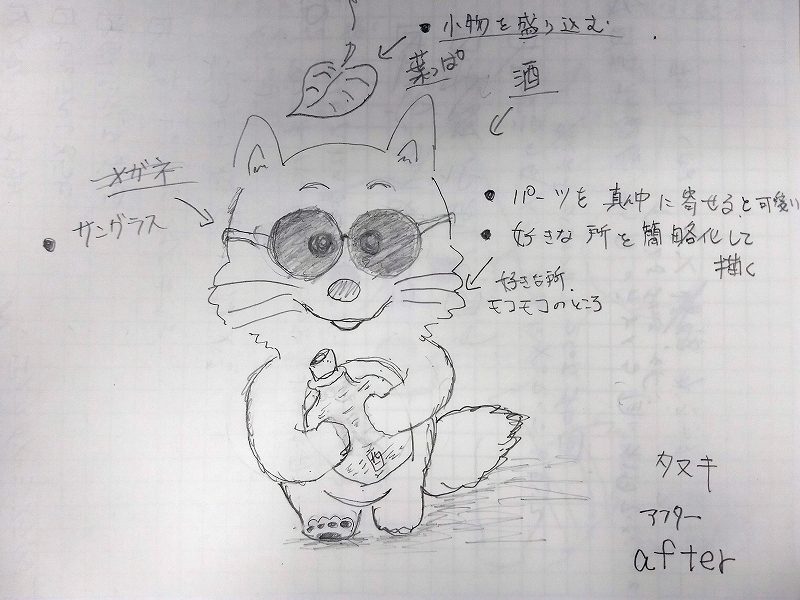 • 小物を盛り込む
葉っぱ
酒
メガネ
• サングラス
• パーツを真中に寄せると可愛い
• 好きな所を簡略化して
描く
好きな所.
モコモコのところ
酒
タヌキ
アフター
after